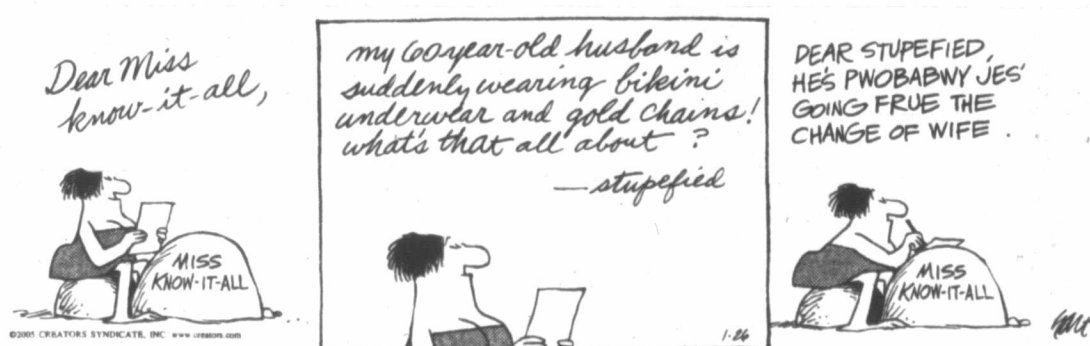 Dear Miss
know-it-all,
MISS
KNOW-IT-ALL
©2005 CREATORS SYNDICATE, INC. www.creators.com
my 60 year-old husband is
suddenly wearing bikini
underwear and gold chains!
what's that all about ?
— stupefied
1-26
DEAR STUPEFIED,
HE'S PWOBABWY JES'
GOING FRUE THE
CHANGE OF WIFE .
MISS
KNOW-IT-ALL